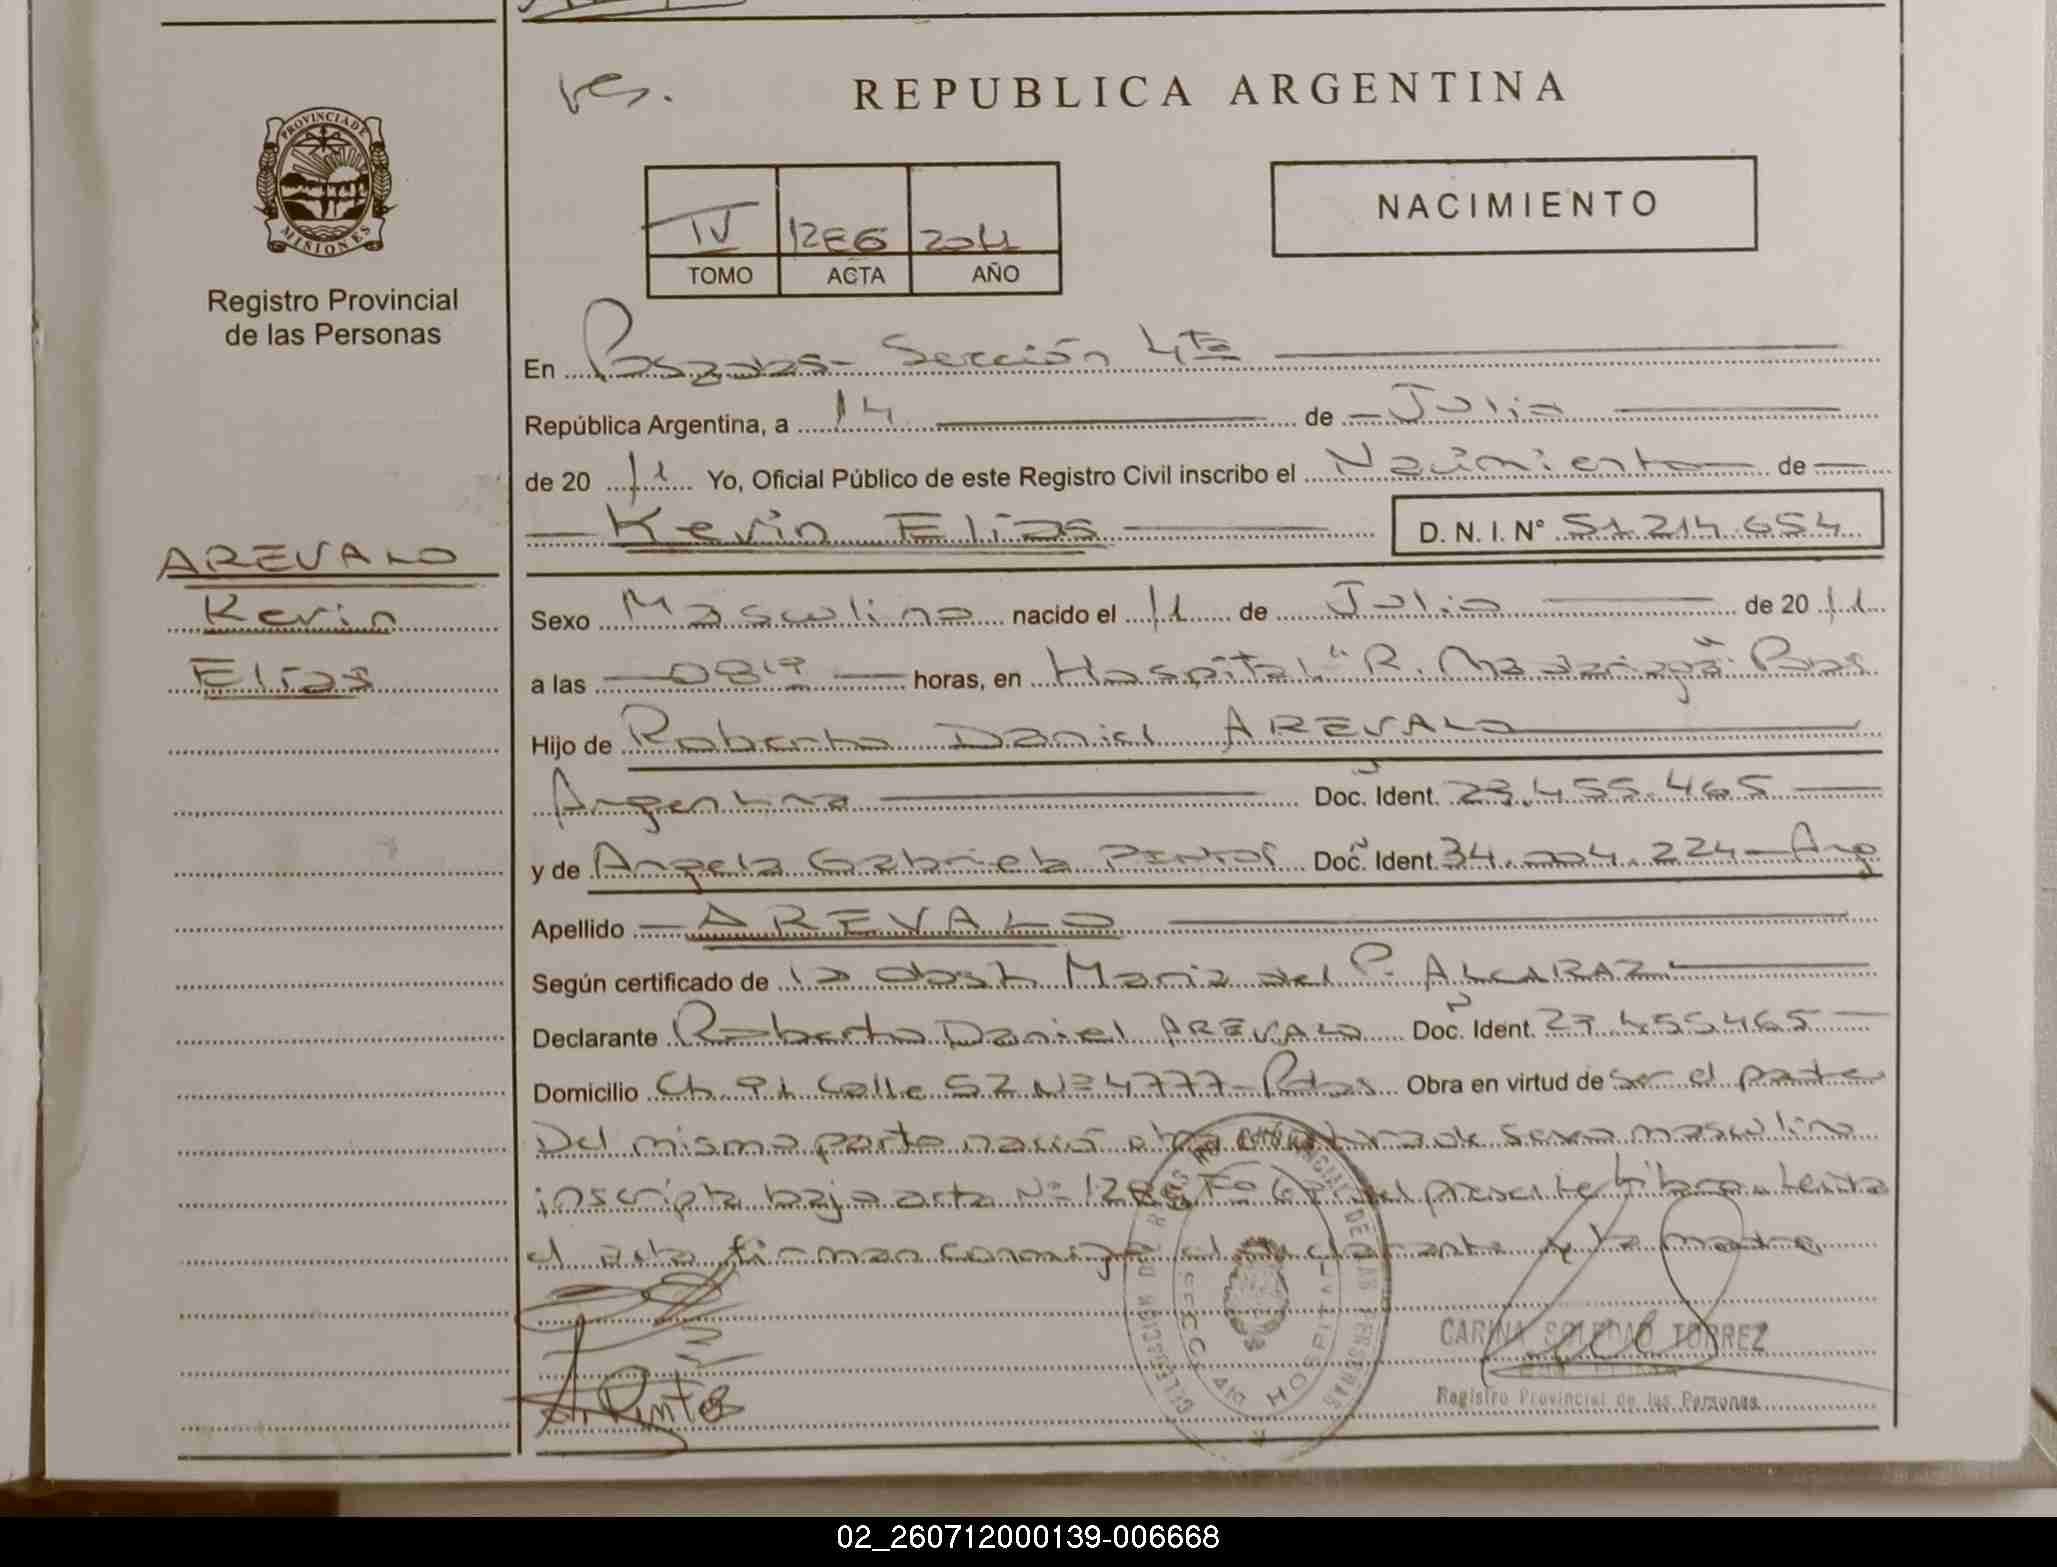 res.
REPUBLICA ARGENTINA
PROVINCIA DE
MISIONES
Registro Provincial
de las Personas
IV 2011
TOMO ACTA AÑO
NACIMIENTO
En Posadas - Sección 4ta
República Argentina, a 14 de Julio
de 20 11 Yo, Oficial Público de este Registro Civil inscribo el Nacimiento de
Kevin Elias D. N. I. N° 51.214.654
AREVALO
Kevin
Elias
Sexo Masculino nacido el 11 de Julio de 20 11
a las horas, en Hospital "R. Madariaga" Pdas.
Hijo de Roberto Daniel AREVALO
Argentina Doc. Ident. 23.455.465
y de Angela Gabriela PINTOS Doc. Ident. 34. 224 - Arg
Apellido AREVALO
Según certificado de la obst. Maria del P. ALCARAZ
Declarante Roberto Daniel AREVALO Doc. Ident. 23.455.465
Domicilio Ch. Calle 52 Nº 4777 - Pdas Obra en virtud de ser el padre
Del mismo parto nació otra de sexo masculino
inscripta bajo acta Nº del presente Libro. Leida
el acta firman conmigo el declarante y la madre.
A. Pintos
HOSPITAL
CARINA SOLEDAD TORREZ
Registro Provincial de las Personas
02_260712000139-006668